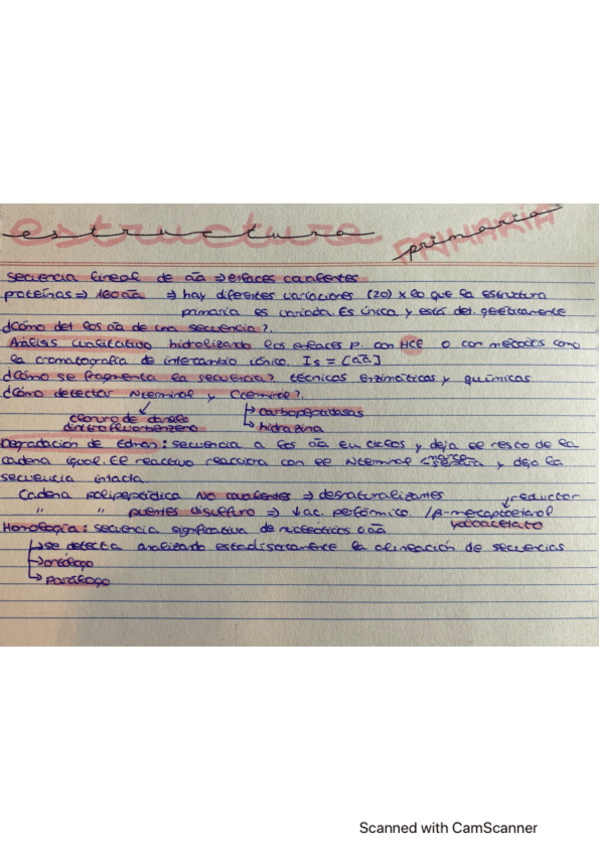 estructura PRIMARIA primaria
secuencia lineal de aa ⇒ enlaces covalentes
proteínas ⇒ 160 aa ⇒ hay diferentes variaciones (20) x lo que la estructura
primaria es variada. Es única y está det. genéticamente
¿Cómo det los aa de una secuencia?.
Análisis cualitativo hidrolizando los enlaces p. con HCl o con métodos como
la cromatografía de intercambio iónico. Is = [aa]
¿Cómo se fragmenta la secuencia? técnicas enzimáticas y químicas
¿Cómo detectar Nterminal y Cterminal?.
cloruro de dansilo → carboxipeptidasas
dinitrofluorobenzeno → hidrazina
Degradación de Edman: secuencia a los aa en ciclos y deja el resto de la
cadena igual. El reactivo reacciona con el Nterminal marca y deja la
secuencia intacta
Cadena polipeptídica no covalentes ⇒ desnaturalizantes reductor
" " puentes disulfuro ⇒ ↓ ac. perfórmico. / β-mercaptoetanol
yodoacetato
Homología: secuencia significativa de nucleótidos o aa
→ se detecta analizando estadísticamente la alineación de secuencias
→ ortólogo
→ parálogo
Scanned with CamScanner